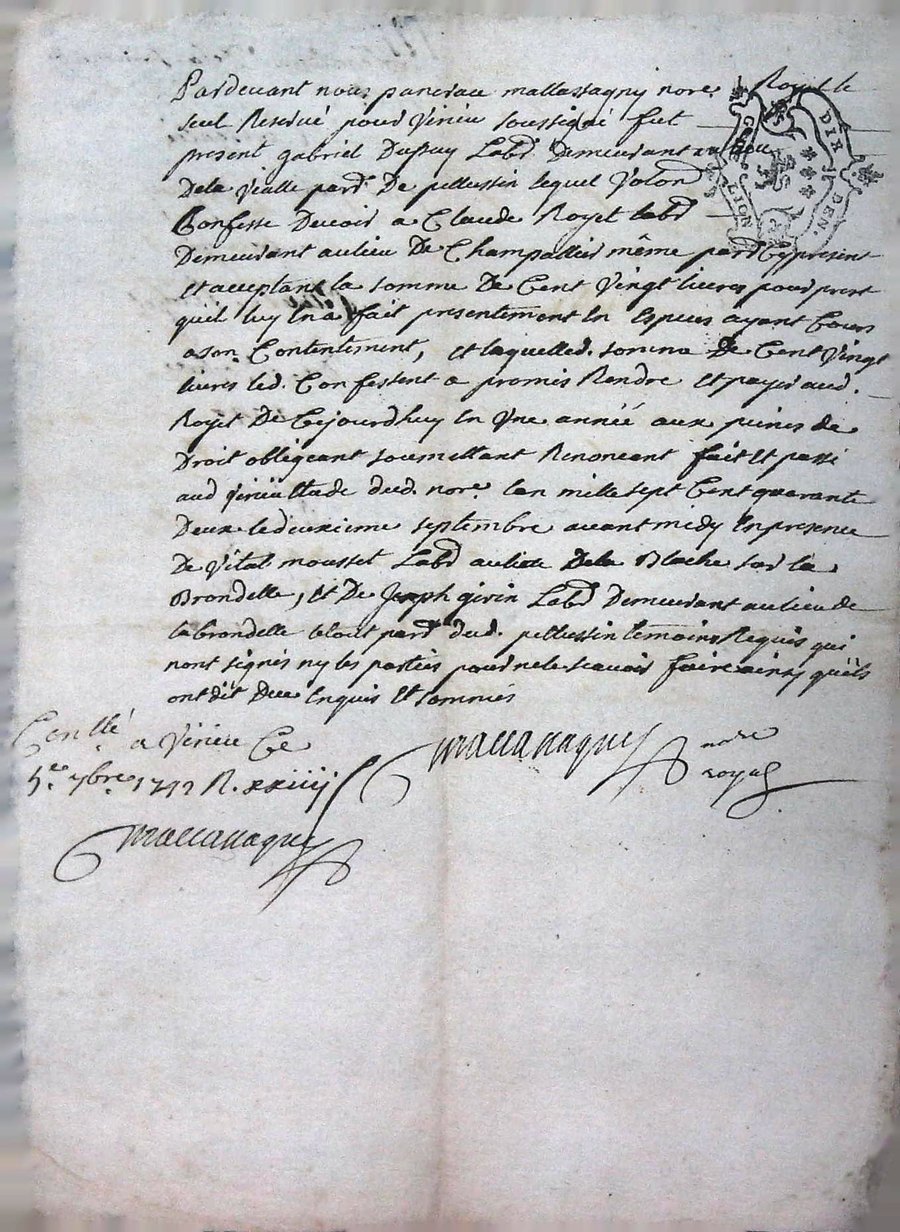 Pardevant nous pancrace mallassagny nore. Royal le
seul Reservé pour Virieu soussigné fut
present gabriel Dupuy Labr. Demeurant au lieu
Dela Vialle parr. De pellussin lequel Volont
Confesse Devoir a Claude Royet labr
Demeurant au lieu De Champallier même parr Cy present
et acceptant la somme De Cent Vingt livres pour prest
quil luy en a fait presentement En Especes ayant Cours
a son Contentement, et laquelled. somme De Cent Vingt
livres led. Confessent a promis Rendre et payer aud.
Royet De Cejourdhuy en Une année aux peines de
Droit obligeant soumettant Renoncant fait et passé
aud Virieu Etude dud. nore. lan mille sept Cent quarante
Deux le deuxieme septembre avant midy En presence
De Vital mousset Labr au lieu Dela Blache sur la
Brondelle, et De Joseph girin Labr Demeurant au lieu de
la brondelle le tout parr dud. pellussin temoins Requis qui
nont signés ny les parties pour ne le scavoir faire ainsy quils
ont dit Due Enquis Et sommés
GENE. LION DIX DEN.
mallassagny nore
royal
Conllé
a Virieu Ce
5.e 7bre. 1742 R. xxiiij s
mallassagny